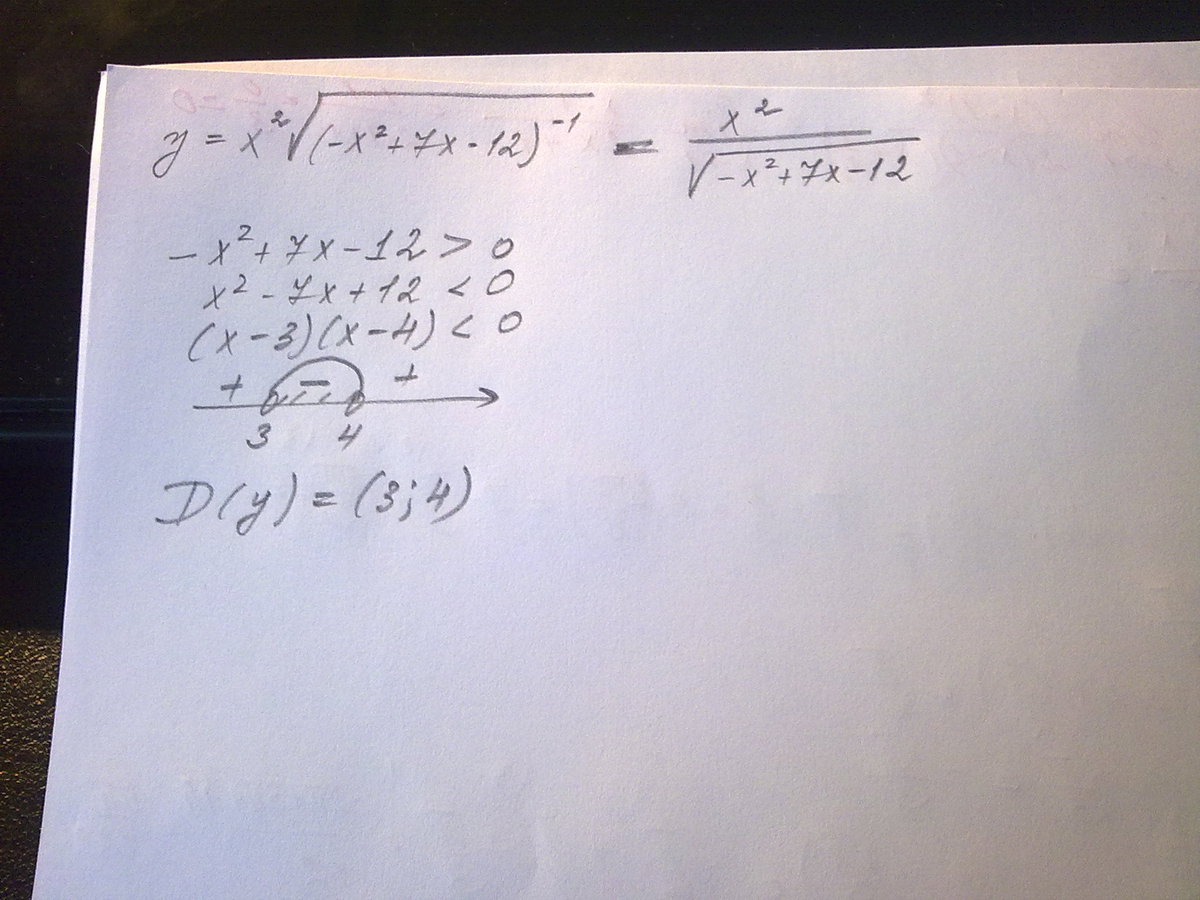 y = x²√(-x²+7x-12)⁻¹ = x² / √-x²+7x-12
-x²+7x-12 > 0
x²-7x+12 < 0
(x-3)(x-4) < 0
+ - +
3 4
D(y) = (3;4)